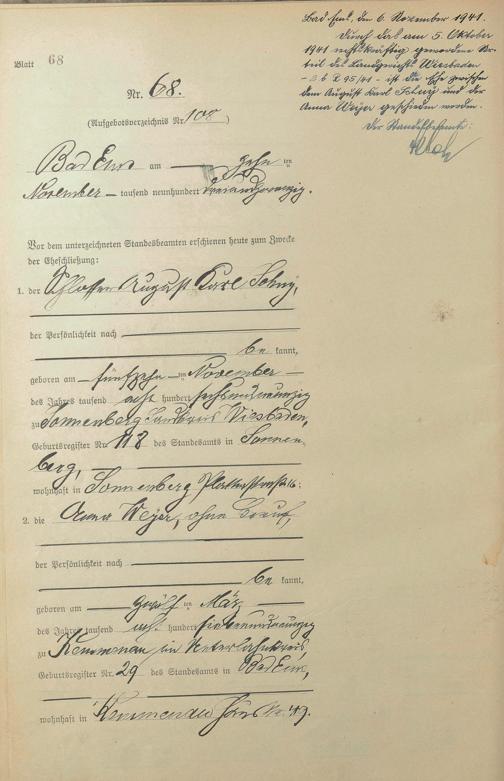 Bad Ems, den 6. November 1941.
Durch das am 5. Oktober
1941 rechtskräftig gewordene Ur-
teil des Landgerichts Wiesbaden
- 3 b R 95/41 - ist die Ehe zwischen
dem August Karl und der
Anna Weyer geschieden worden.
Der Standesbeamte:
Blatt 68
Nr. 68.
(Aufgebotsverzeichnis Nr. 100)
Bad Ems am zehn ten
November tausend neunhundert
Vor dem unterzeichneten Standesbeamten erschienen heute zum Zwecke
der Eheschließung:
1. der Schlosser August Karl
der Persönlichkeit nach
be kannt,
geboren am fünfzehn ten November
des Jahres tausend acht hundert sechsundneunzig
zu Sonnenberg Landkreis Wiesbaden,
Geburtsregister Nr. 118 des Standesamts in Sonnen-
berg,
wohnhaft in Sonnenberg Platterstraße 16.
2. die Anna Weyer, ohne Beruf,
der Persönlichkeit nach
be kannt,
geboren am zwölf ten März
des Jahres tausend acht hundert siebenundneunzig
zu Kemmenau im Unterlahnkreis,
Geburtsregister Nr. 29 des Standesamts in Bad Ems,
wohnhaft in Kemmenau Haus No. 49.